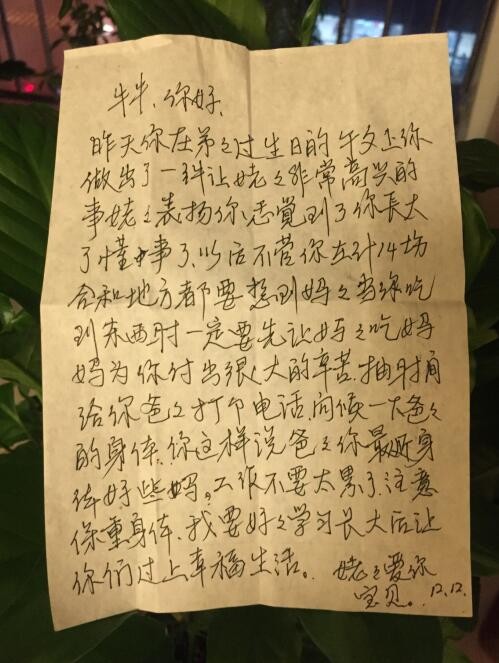 牛牛、你好、
昨天你在弟々过生日的午文上你
做出了一件让姥々非常高兴的
事姥々表扬你感觉到了你長大
了懂事了、以后不管你在什么场
合和地方都要想到妈々当你吃
到东西时一定要先让妈々吃妈
妈为你付出很大的辛苦.抽时间
给你爸々打个电话、问候一下爸々
的身体、你这样说爸々你最近身
体好些吗。工作不要太累了注意
保重身体、我要好々学习长大后让
你们过上幸福生活。姥々爱你
宝贝。12.12.